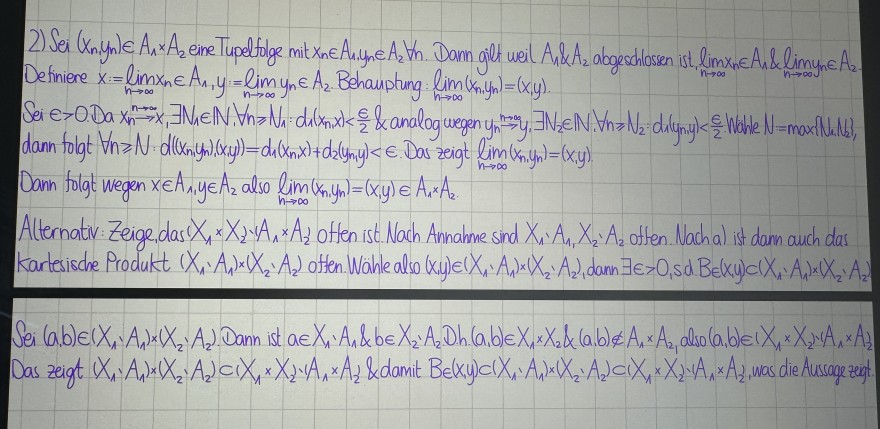 2) Sei (xn,yn)∈ A₁×A₂ eine Tupelfolge mit xn∈A₁,yn∈A₂ ∀n. Dann gilt weil A₁&A₂ abgeschlossen ist, lim n→∞ xn∈A₁ & lim n→∞ yn∈A₂.
Definiere x:=lim n→∞ xn∈A₁, y:=lim n→∞ yn∈A₂. Behauptung: lim n→∞ (xn,yn)=(x,y).
Sei ϵ>0. Da xn n→∞→ x, ∃N₁∈ℕ:∀n≥N₁: d₁(xn,x)<ϵ/2 & analog wegen yn n→∞→ y, ∃N₂∈ℕ:∀n≥N₂: d₂(yn,y)<ϵ/2. Wähle N=max{N₁,N₂},
dann folgt ∀n≥N: d((xn,yn),(x,y))=d₁(xn,x)+d₂(yn,y)<ϵ. Das zeigt lim n→∞ (xn,yn)=(x,y).
Dann folgt wegen x∈A₁,y∈A₂ also lim n→∞ (xn,yn)=(x,y)∈A₁×A₂.
Alternativ: Zeige, das (X₁×X₂)\(A₁×A₂) offen ist. Nach Annahme sind X₁\A₁, X₂\A₂ offen. Nach a) ist dann auch das
Kartesische Produkt (X₁\A₁)×(X₂\A₂) offen. Wähle also (x,y)∈(X₁\A₁)×(X₂\A₂), dann ∃ϵ>0, s.d. Bϵ(x,y)⊂(X₁\A₁)×(X₂\A₂)
Sei (a,b)∈(X₁\A₁)×(X₂\A₂). Dann ist a∈X₁\A₁ & b∈X₂\A₂. D.h. (a,b)∈X₁×X₂ & (a,b)∉A₁×A₂, also (a,b)∈(X₁×X₂)\(A₁×A₂)
Das zeigt (X₁\A₁)×(X₂\A₂)⊂(X₁×X₂)\(A₁×A₂) & damit Bϵ(x,y)⊂(X₁\A₁)×(X₂\A₂)⊂(X₁×X₂)\(A₁×A₂), was die Aussage zeigt.